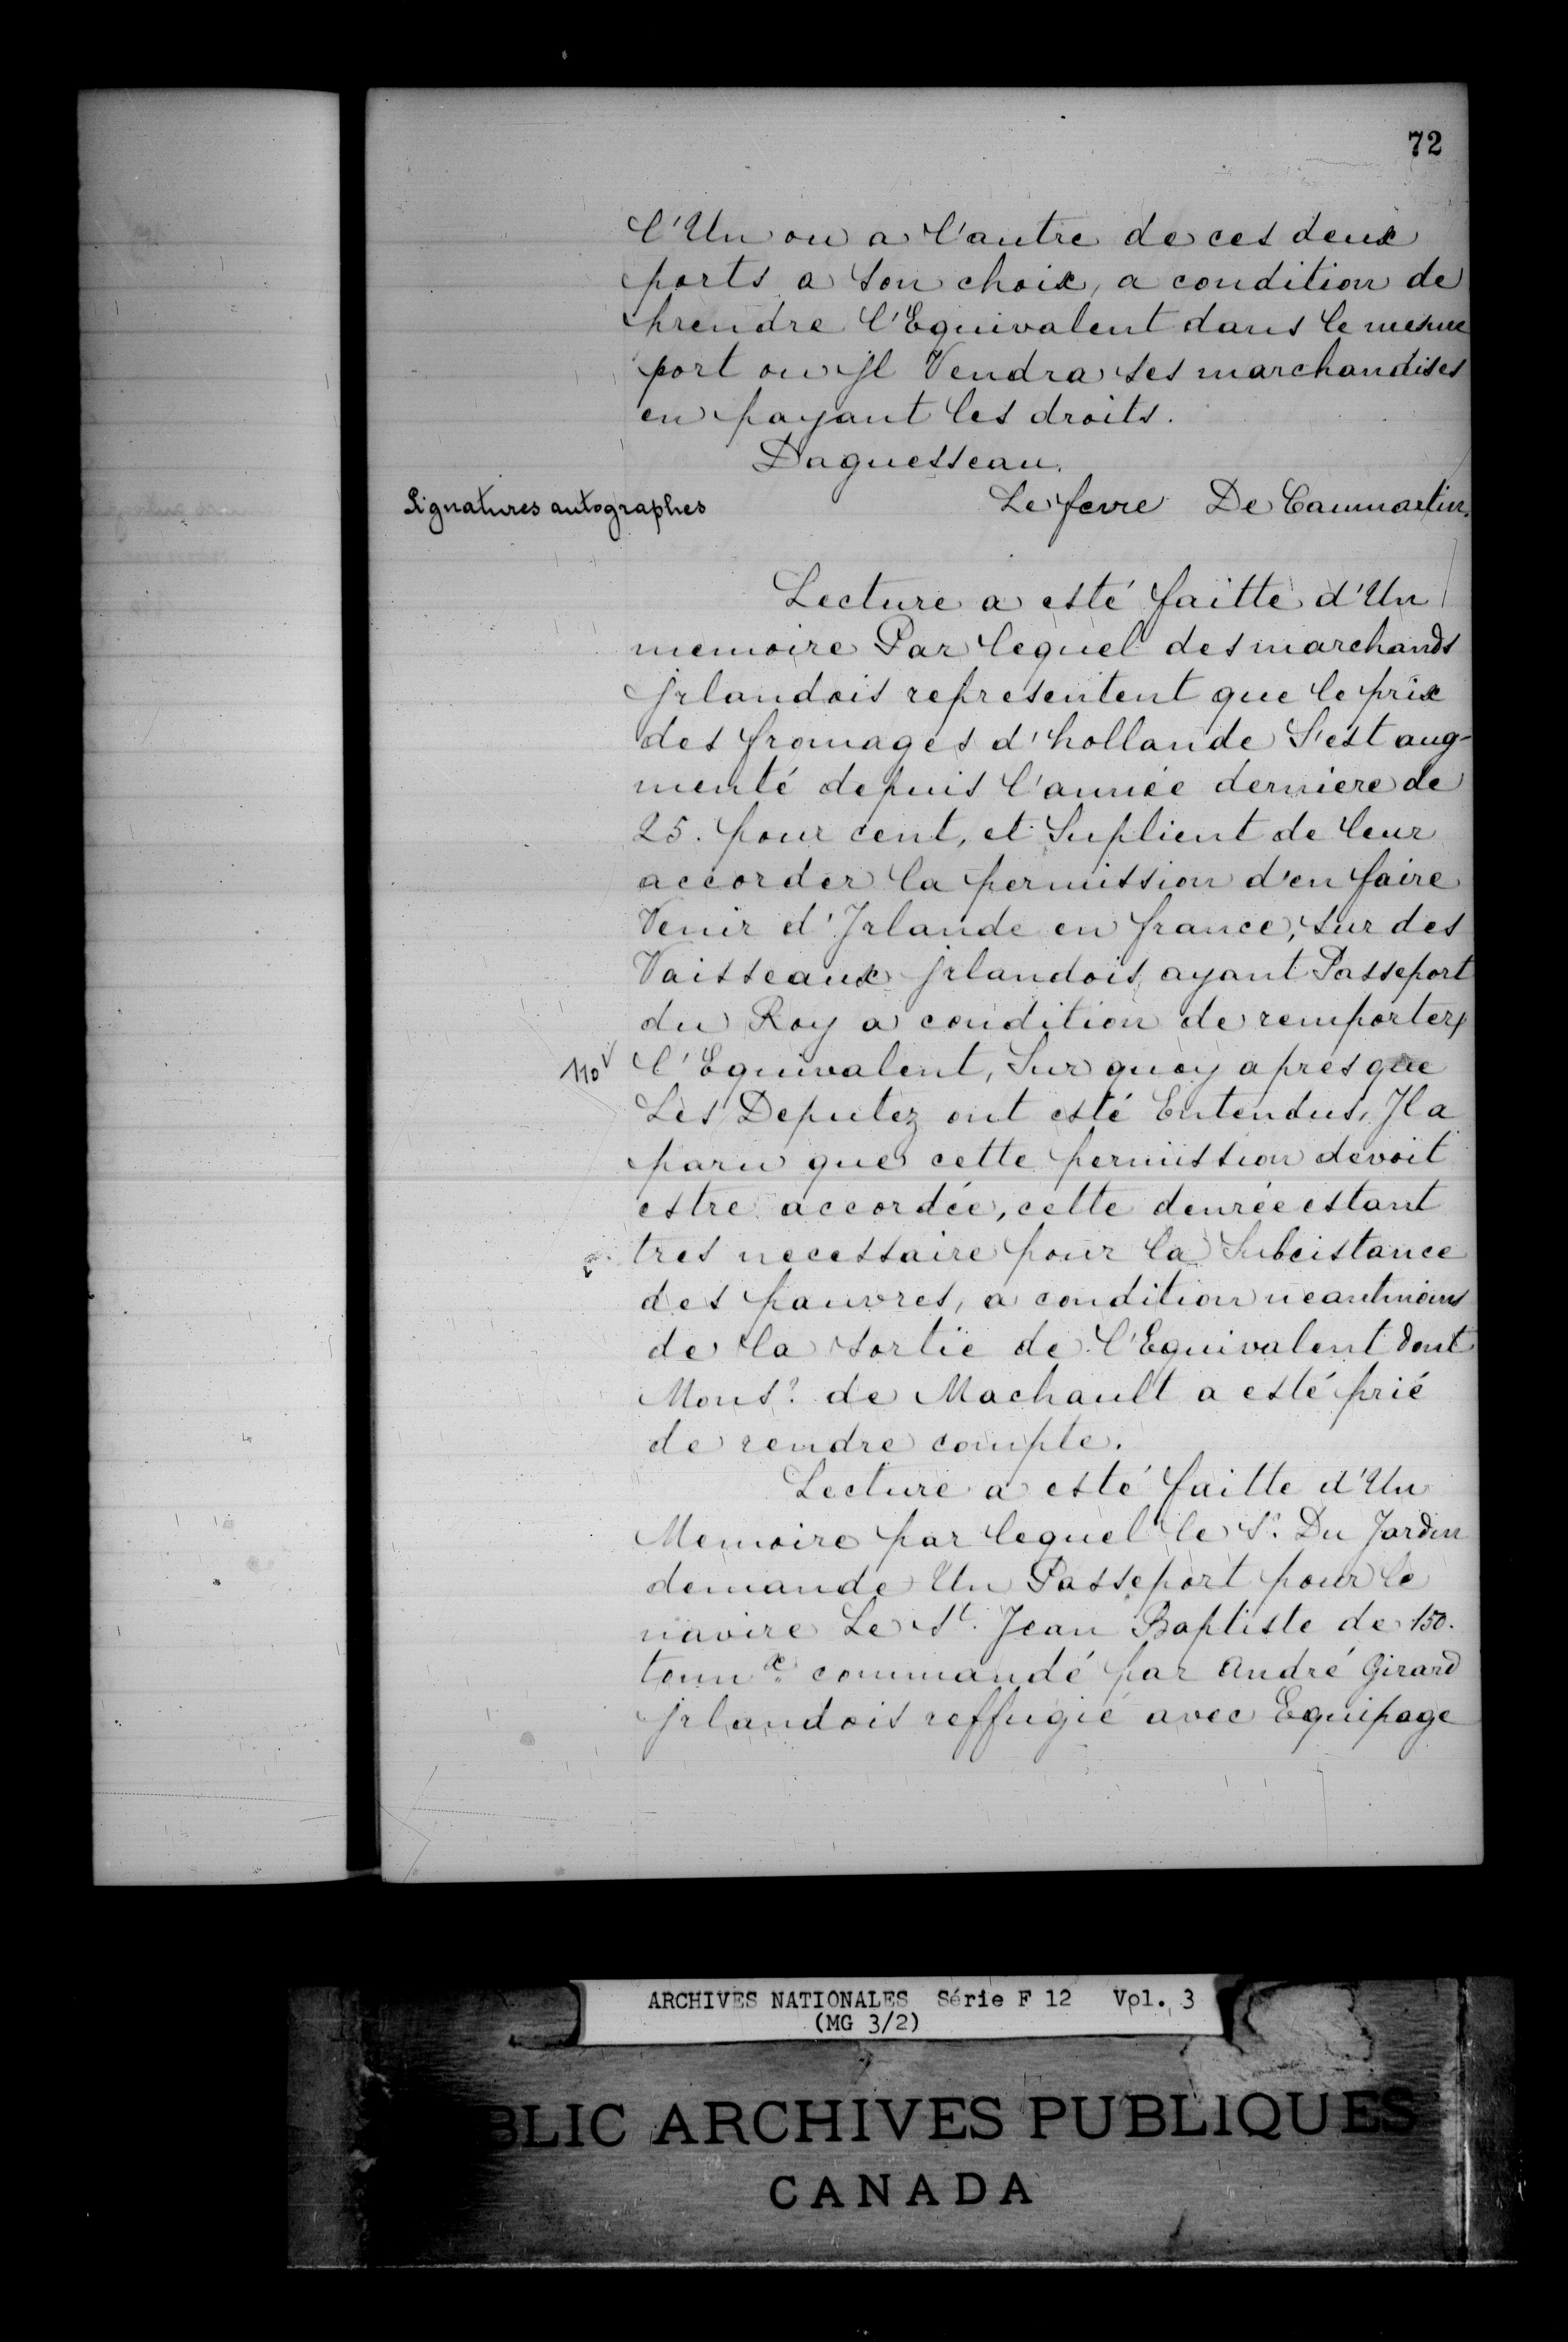 72
l'Un ou a l'autre de ces deux
ports a son choix, a condition de
prendre l'Equivalent dans le mesme
port ou Jl Vendra ses marchandises
en payant les droits.
Daguesseau.
Signatures autographes
Lefevre De Caumartin.
Lecture a esté faitte d'Un
memoire Par lequel des marchands
jrlandois representent que le prix
des fromages d'hollande S'est aug-
menté depuis l'année derniere de
25. pour cent, et Suplient de leur
accorder la permission d'en faire
Venir d'Jrlande en france, sur des
Vaisseaux jrlandois ayant Passeport
du Roy a condition de remporter
110 v
l'Equivalent, Sur quoy apres que
Les Deputez ont esté Entendus, Jl a
paru que cette permission devoit
estre accordée, cette denrée estant
tres necessaire pour la Subcistance
des pauvres, a condition neantmoins
de la sortie de l'Equivalent dont
Monsr. de Machault a esté prié
de rendre compte.
Lecture a esté faitte d'Un
Memoire par lequel le Sr. Du Jardin
demande Un Passeport pour le
navire Le St. Jean Baptiste de 150.
tonnx. commandé par André Girard
jrlandois reffugié avec Equipage
ARCHIVES NATIONALES Série F 12 Vol. 3
(MG 3/2)
BLIC ARCHIVES PUBLIQUES
CANADA